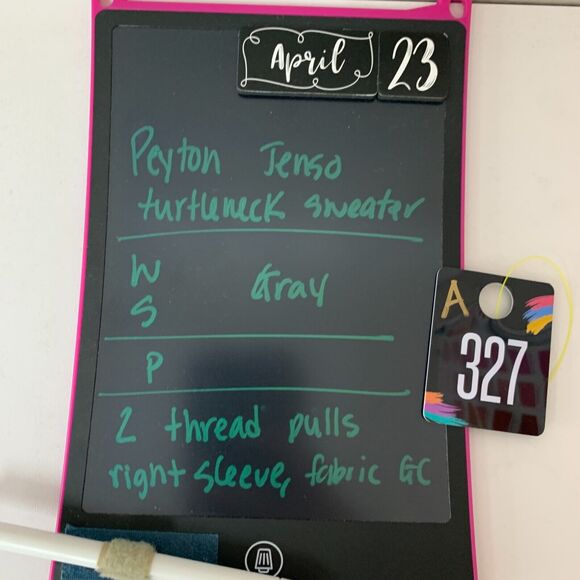 April 23
Peyton Jenso
turtleneck sweater
W Gray
S
A
327
P
2 thread pulls
right sleeve, fabric GC